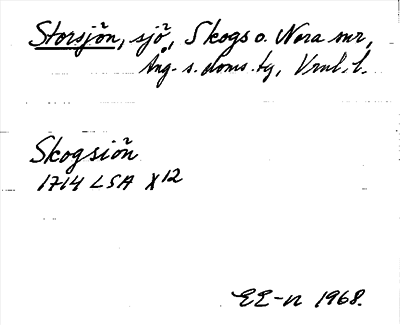 Storsjön, sjö, Skogs o. Nora snr,
Ång. s. doms. tg, Vrnl. l.
Skogsiön
1714 LSA X12
EE-n 1968.